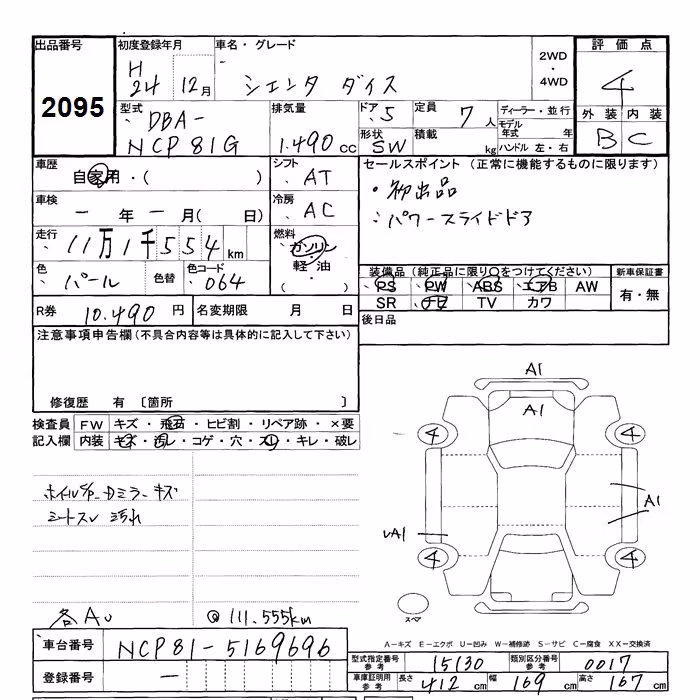 出品番号 初度登録年月 車名・グレード 評価点
2095 H 24 12月 シエンタ ダイス 2WD・4WD 4
型式 DBA- NCP81G 排気量 1.490cc ドア 5 定員 7人 ディーラー・並行
形状 SW 積載 kg モデル年式 年 ハンドル 左・右
外装 内装
B C
車歴 自家用・( ) シフト AT セールスポイント (正常に機能するものに限ります)
・初出品
・パワースライドドア
車検 ー年ー月( 日) 冷房 AC
走行 11万1千554km 燃料 ガソリン 軽油 ( ・ )
色 パール 色替 色コード 064
装備品 (純正品に限り○をつけてください) 新車保証書
PS PW ABS エアB AW 有・無
SR ナビ TV カワ
R券 10.490円 名変期限 月 日 後日品
注意事項申告欄(不具合内容等は具体的に記入して下さい)
修復歴 有 〔箇所 〕
検査員記入欄 FW キズ・飛石・ヒビ割・リペア跡・×要
内装 キズ・汚レ・コゲ・穴・スレ・キレ・破レ
キズ
シートスレ 汚れ
各AU @111.555km
A1
A1
4 4
A1
UA1
4 4
スペア
A-キズ E-エクボ U-凹み W-補修跡 S-サビ C-腐食 XX-交換済
車台番号 NCP81-5169696
登録番号 ー
型式指定番号 参考 15130 類別区分番号 参考 0017
車庫証明用 参考 長さ 412cm 幅 169cm 高さ 167cm